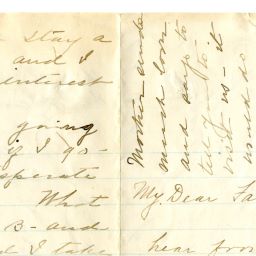 stay a
and I
interest
going
if I go -
sperate
What
B - and
d I take
Mother sends
much love
and says to
tell
visit us - it
would do
My Dear Sa
hear from